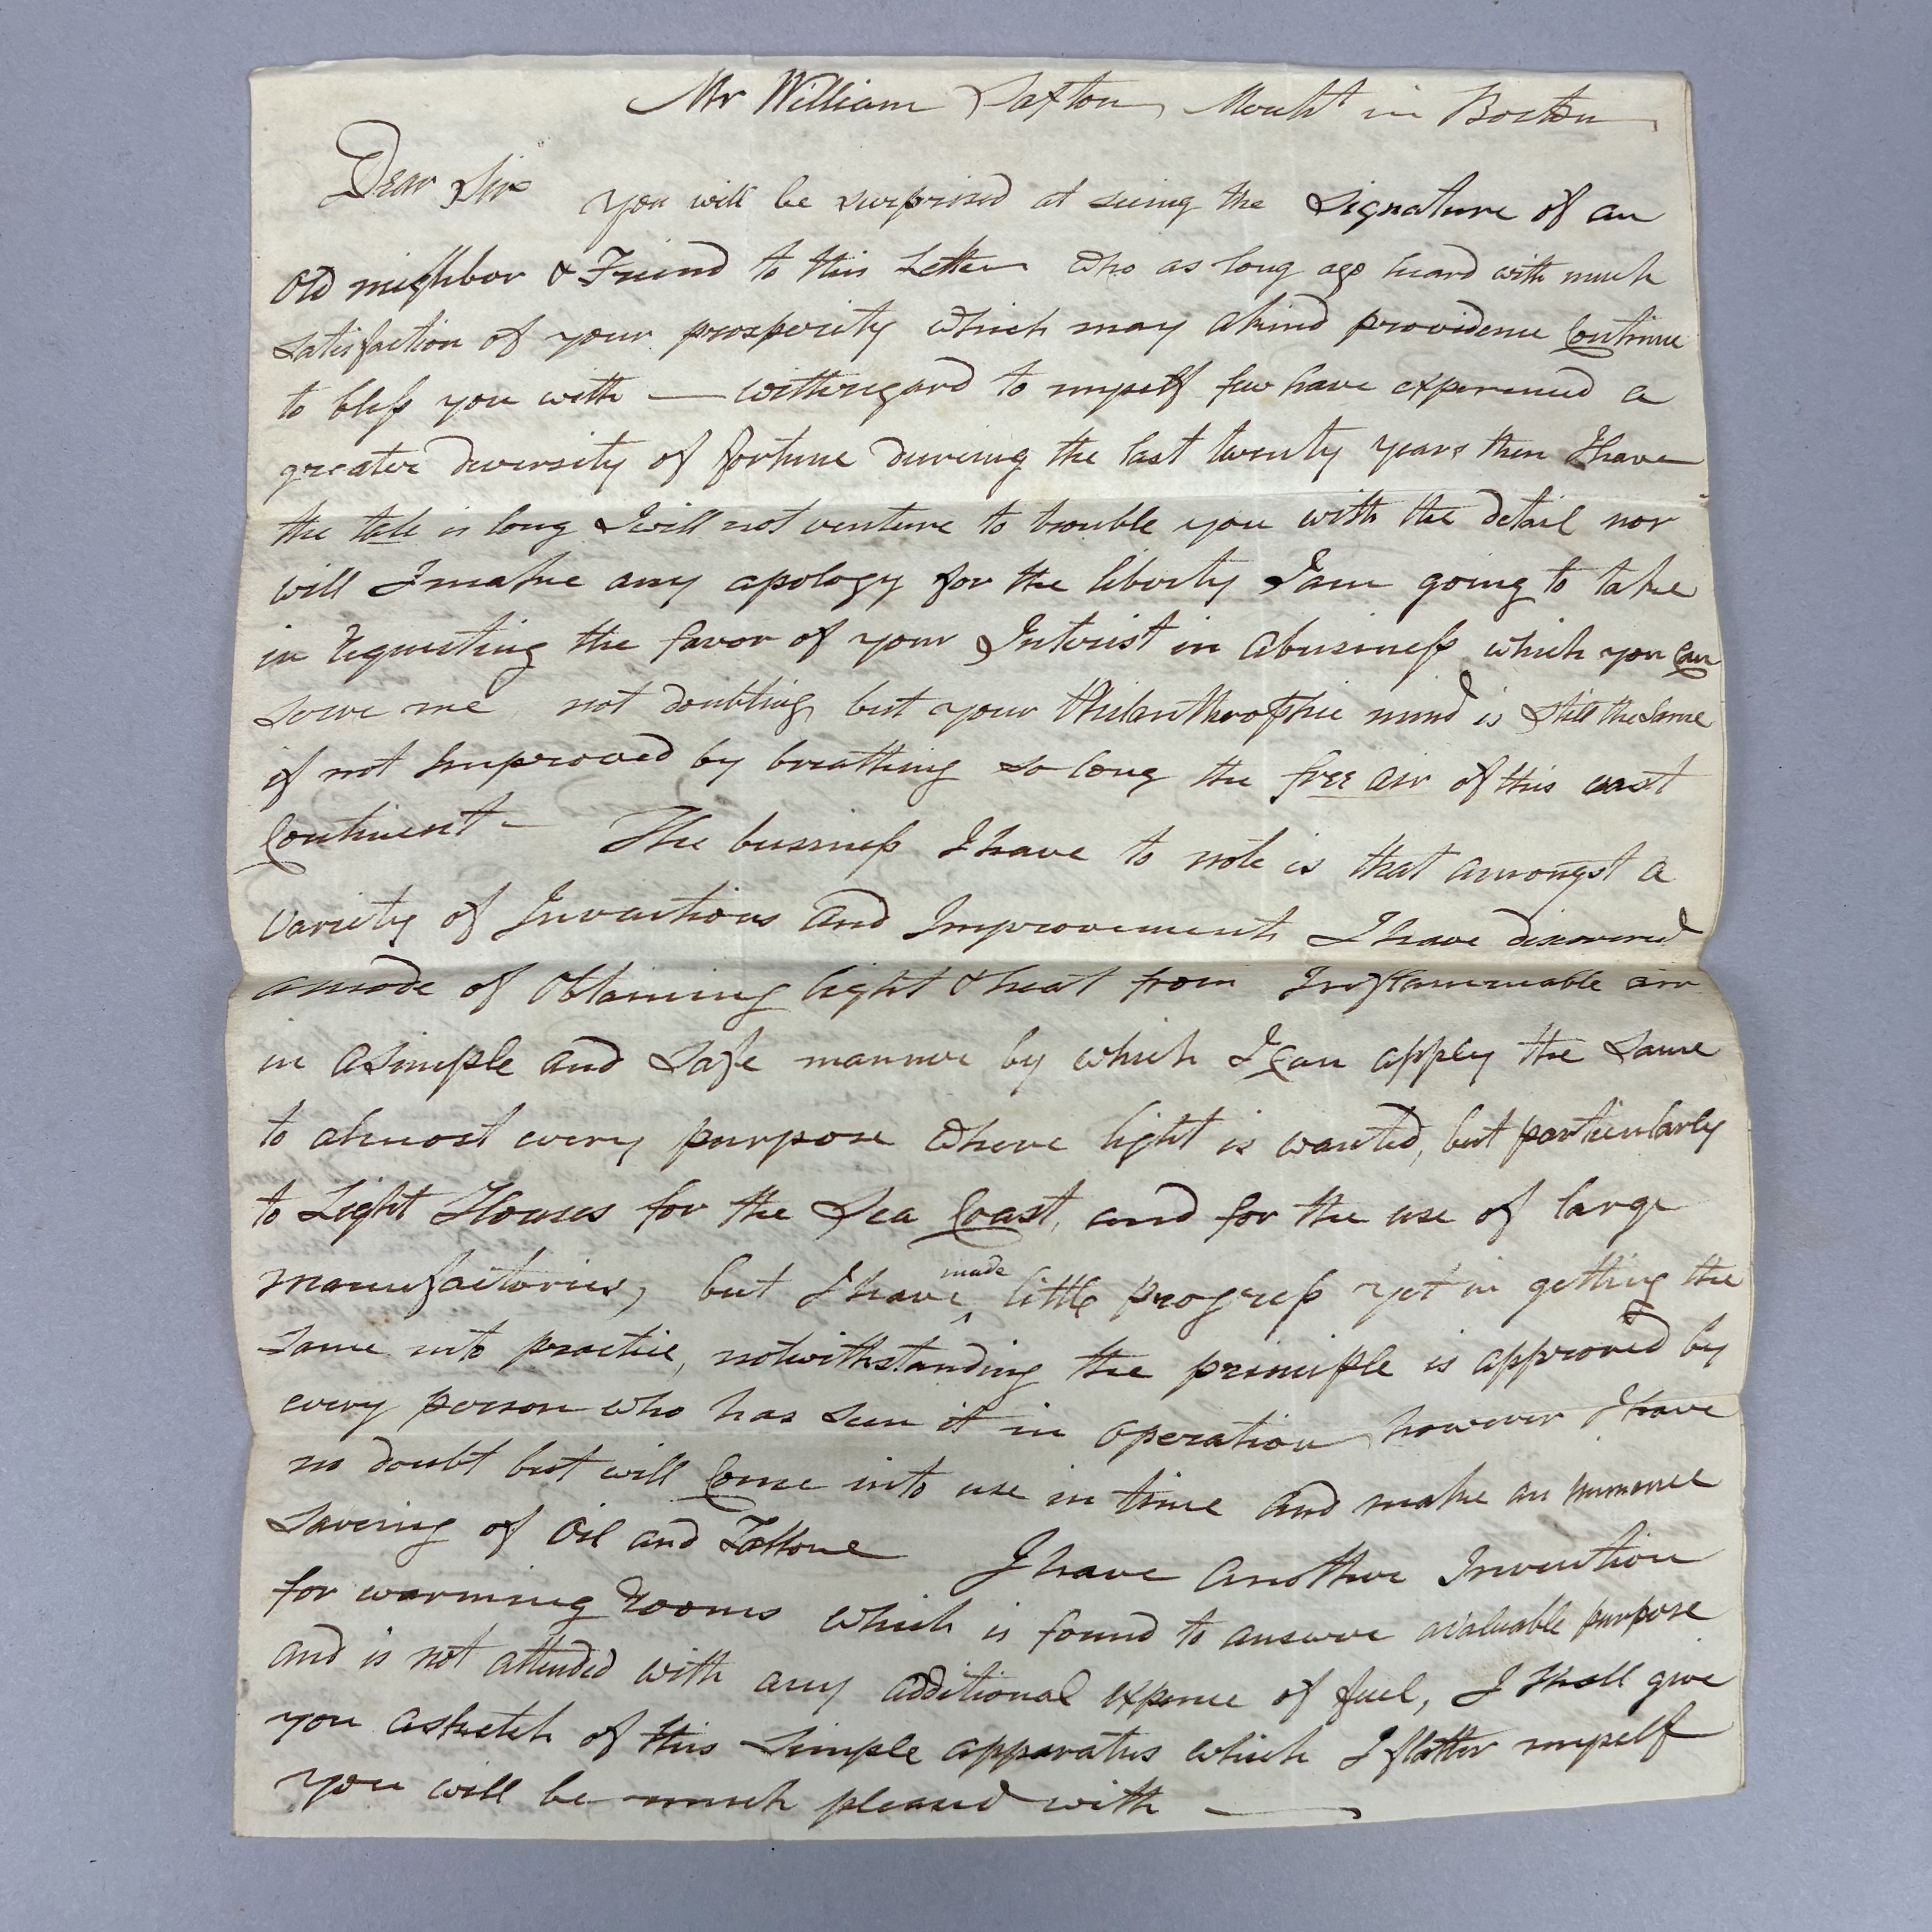 Mr William Saxton, Mercht in Boston
Dear Sir you will be surprised at seeing the Signature of an
old neighbor & Friend to this Letter who as long ago heard with much
satisfaction of your prosperity which may akind providence Continue
to bless you with — withregard to myself few have experienced a
greater diversity of fortune dureing the last twenty years then I have
the tale is long I will not venture to trouble you with the detail nor
will I make any apology for the liberty I am going to take
in requesting the favor of your Interist in abusiness which you Can
serve me not doubting but your Philanthrophic mind is still the same
if not Improved by breathing so long the free air of this vast
Continent — The bussiness I have to note is that amongst a
variety of Invantions and Improvements I have discovered
amode of Obtaining light & heat from Inflammable air
in asimple and safe manner by which I Can apply the same
to almost every purpose where light is wanted, but particularly
to Light Houses for the Sea Coast, and for the use of large
manufactories, but I have made little progress yet in getting the
same into practice, notwithstanding the principle is approved by
every person who has seen it in operation however I have
no doubt but will Come into use in time and make an immence
saveing of Oil and Tallow I have another Invention
for warming rooms which is found to answer avaluable purpose
and is not attended with any additional expence of fuel, I shall give
you asketch of this simple apparatus which I flatter myself
you will be much pleased with —